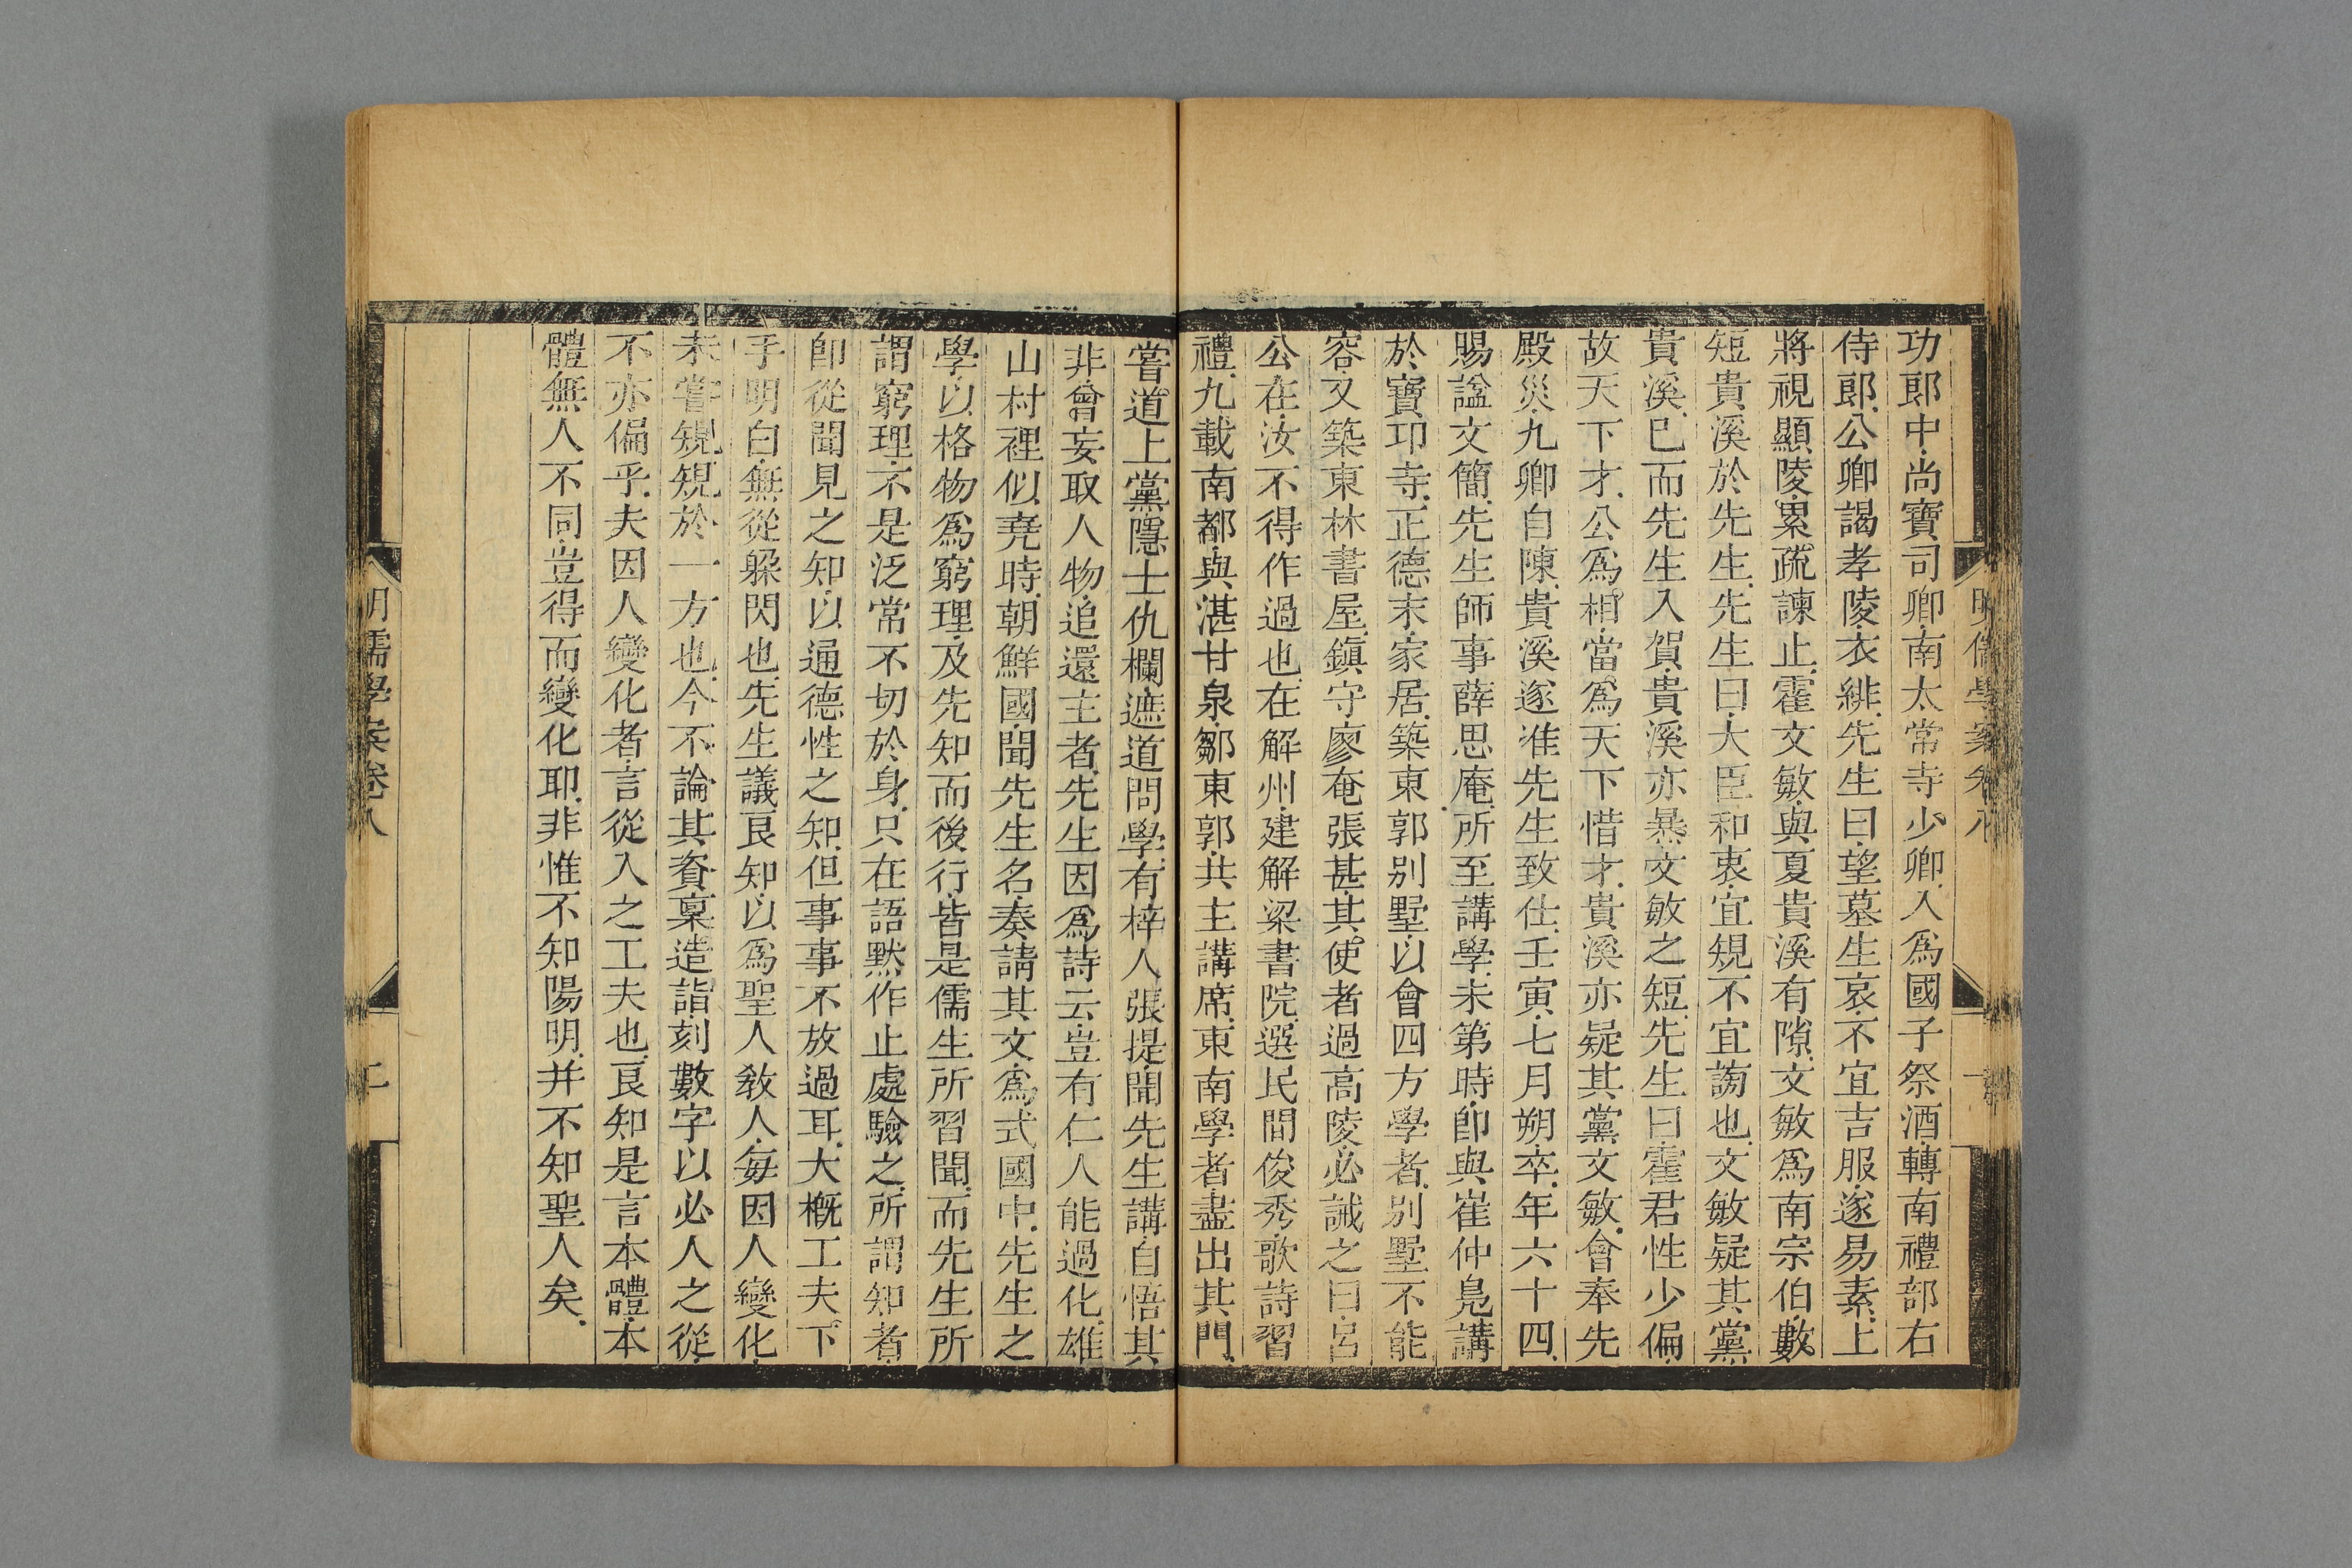 功郎中尚寶司卿南太常寺少卿入爲國子祭酒轉南禮部右
侍郎公卿謁孝陵衣緋先生曰望墓生哀不宜吉服遂易素上
將視顯陵累疏諫止霍文敏與夏貴溪有隙文敏爲南宗伯數
短貴溪於先生先生曰大臣和衷宜規不宜謗也文敏疑其黨
貴溪已而先生入賀貴溪亦暴文敏之短先生曰霍君性少偏
故天下才公爲相當爲天下惜才貴溪亦疑其黨文敏會奉先
殿災九卿自陳貴溪遂准先生致仕壬寅七月朔卒年六十四
賜諡文簡先生師事薛思庵所至講學未第時卽與崔仲鳧講
於寶卭寺正德末家居築東郭别墅以會四方學者别墅不能
容又築東林書屋鎭守廖奄張甚其使者過高陵必誡之曰呂
公在汝不得作過也在解州建解梁書院選民間俊秀歌詩習
禮九載南都與湛甘泉鄒東郭共主講席東南學者盡出其門
嘗道上黨隱士仇欄遮道問學有梓人張提聞先生講自悟其
非曾妄取人物追還主者先生因爲詩云豈有仁人能過化雄
山村裡似堯時朝鮮國聞先生名奏請其文爲式國中先生之
學以格物爲窮理及先知而後行皆是儒生所習聞而先生所
謂窮理不是泛常不切於身只在語默作止處驗之所謂知者
卽從聞見之知以通德性之知但事事不放過耳大槪工夫下
手明白無從躱閃也先生議良知以爲聖人敎人每因人變化
未嘗規規於一方也今不論其資稟造詣刻數字以必人之從
不亦偏乎夫因人變化者言從入之工夫也良知是言本體本
體無人不同豈得而變化耶非惟不知陽明并不知聖人矣
明儒學案卷八
二